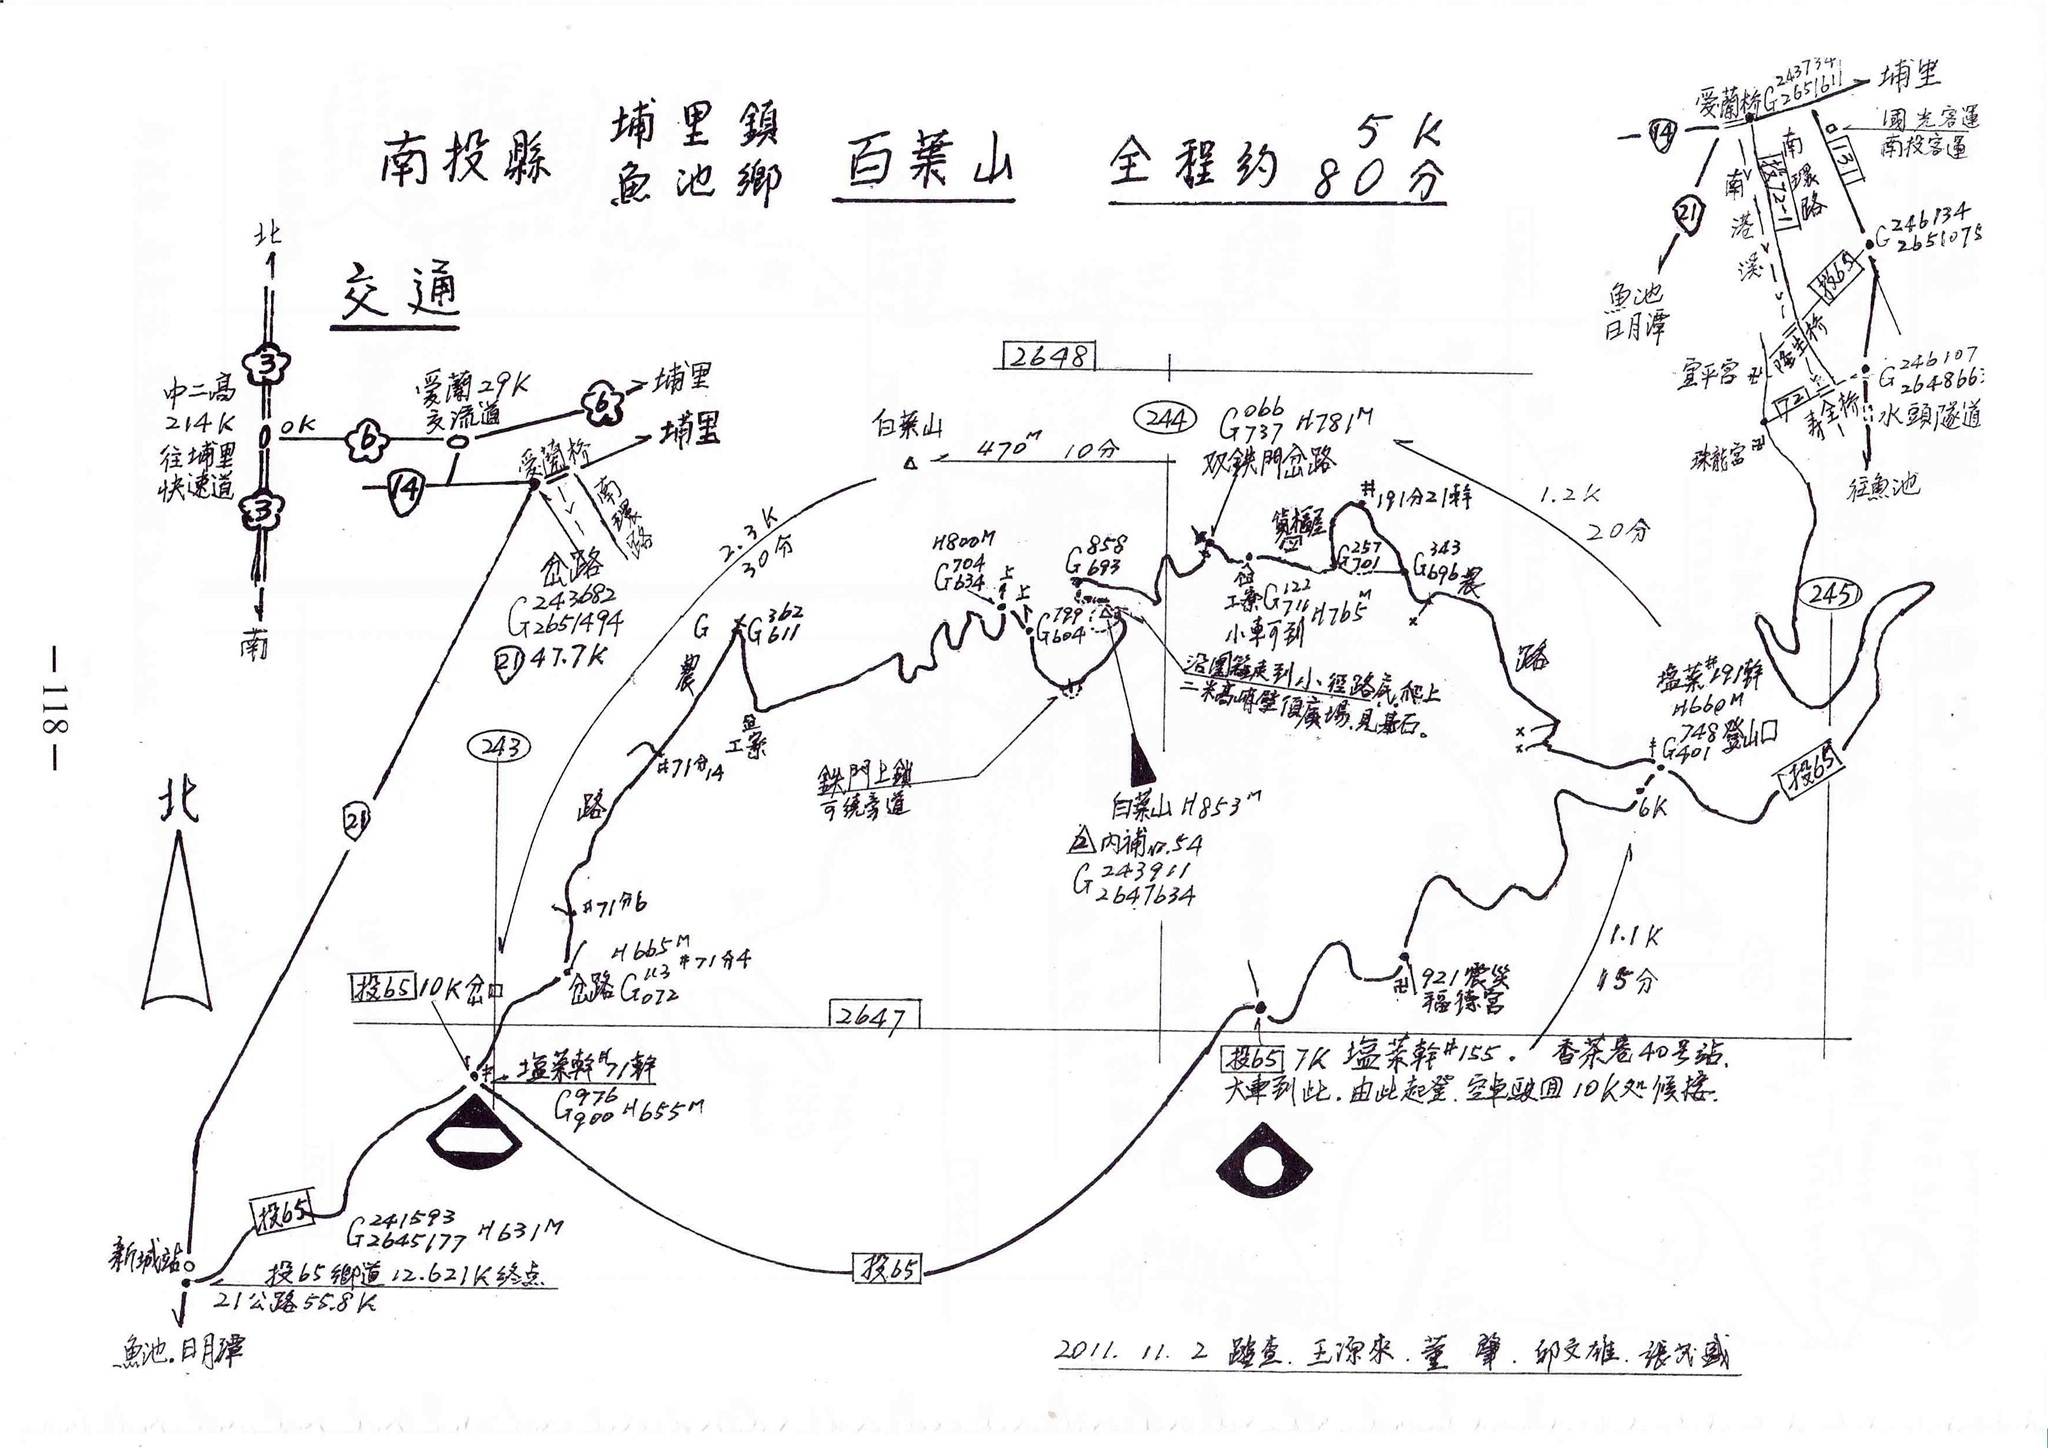 南投縣 埔里鎮 百葉山 全程約 5K
魚池鄉 80分
交通
北
3
中二高
214K
往埔里
快速道
0K
3
南
6
愛蘭 29K
交流道
6
埔里
14
愛蘭橋
埔里
南環路
岔路
G 243682
2651494
21 47.7K
21
愛蘭橋 G 243734
2651611
埔里
14
國光客運
南投客運
131
南環路
投72-1
南港溪
21
魚池
日月潭
G 246134
2651075
投65
隆生橋
宣平宮
721
珠龍宮
G 246107
264866
水頭隧道
往魚池
2648
244
白葉山
470M 10分
G 066
737 H781M
双鉄門岔路
1.2K
20分
#191分21幹
貨櫃屋
G 257
701
G 343
696
農
路
工寮 G 122
711 H765M
小車可到
2.3K
30分
H800M
G 704
634
上
上
G 858
693
G 799
604
沿圍籬走到小徑路底.爬上
二米高崤壁頂廣場.見基石。
鉄門上鎖
可繞旁道
白葉山 H853M
內補no.54
G 243911
2647634
G 362
611
農
路
工寮
#71分14
#71分6
H665M
岔路 G 113
072 #71分4
243
245
塩菜#191幹
H660M
G 748
401 登山口
投65
6K
1.1K
15分
921震災
福德宮
投65 10K岔口
2647
塩菜幹#71幹
G 976
900 H655M
投65 7K 塩菜幹#155. 香茶巷40号站.
大車到此.由此起登.空車駛回10K处候接.
北
投65
G 241593
2645177 H631M
新城站
投65鄉道12.621K終点
21公路55.8K
魚池.日月潭
投65
2011. 11. 2 踏查.王源來.董 肇.邱文雄.張茂盛
—118—